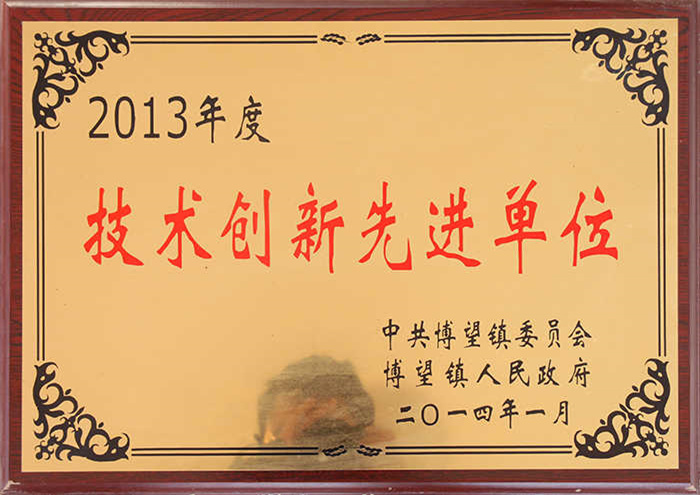 2013年度
技术创新先进单位
中共博望镇委员会
博望镇人民政府
二〇一四年一月